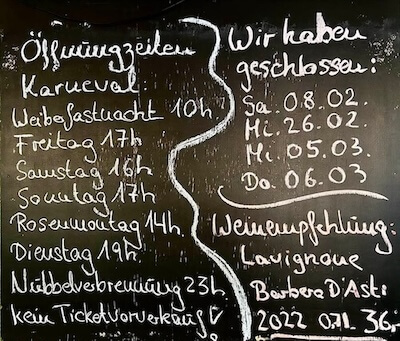 Öffnungzeiten
Karneval:
Weiberfastnacht 10h
Freitag 17h
Samstag 16h
Sonntag 17h
Rosenmontag 14h.
Dienstag 19h.
Nubbelverbrennung 23h
kein Ticketvorverkauf!
Wir haben
geschlossen:
Sa. 08.02.
Mi. 26.02.
Mi. 05.03.
Do. 06.03
Weinempfehlung:
Lavignone
Barbera D'Asti
2022 0,7l. 36,-